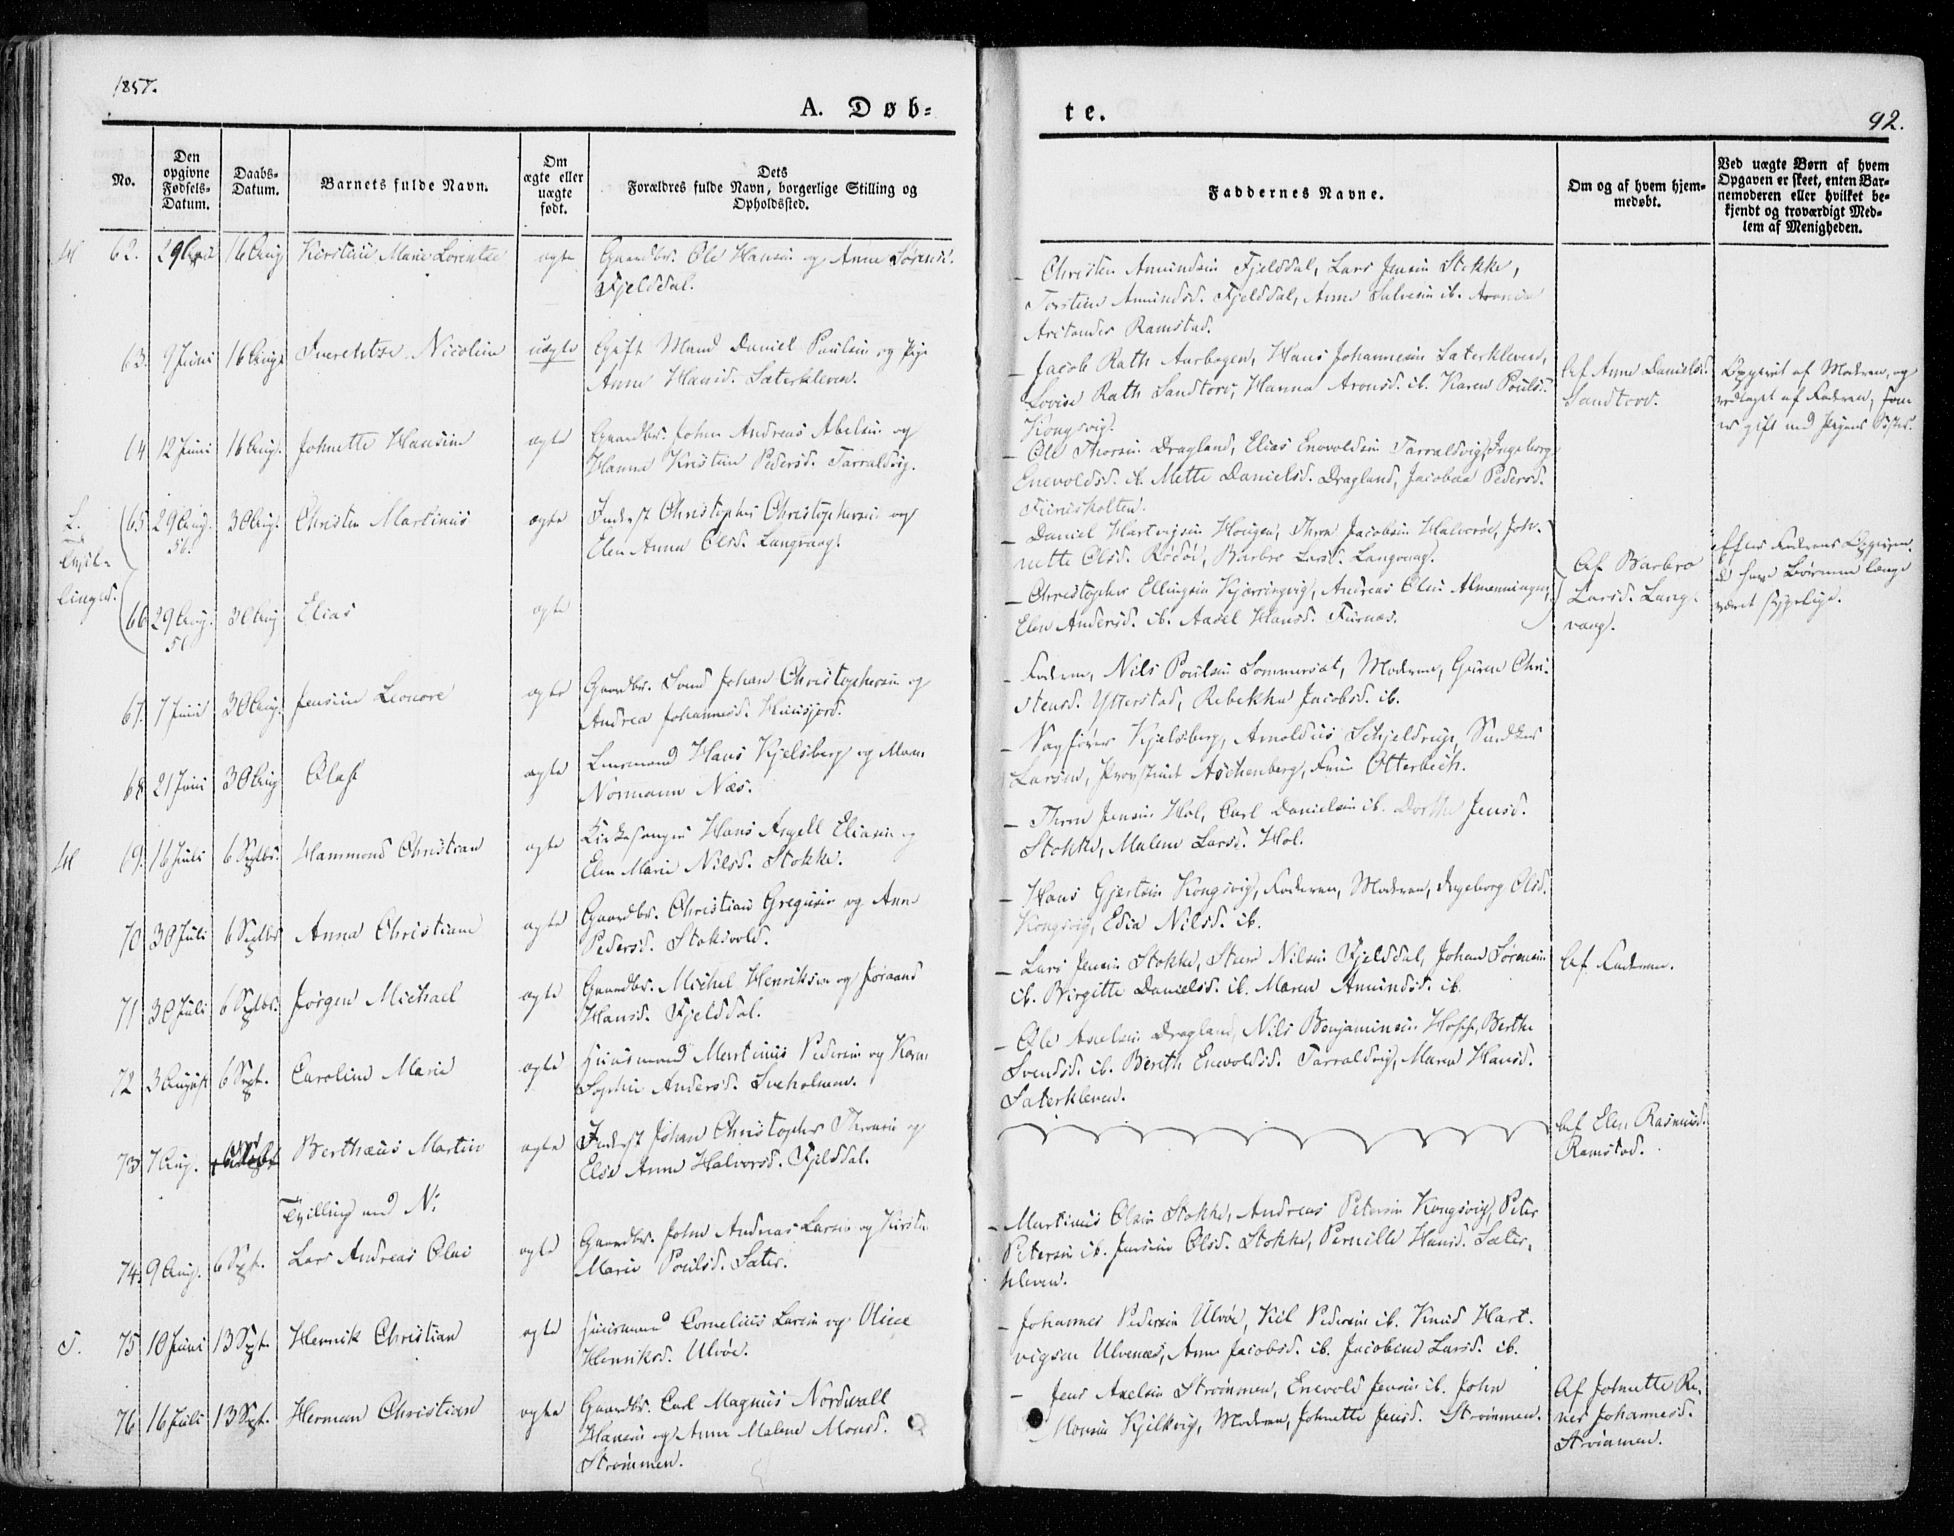 1857.
A. Døb=
te.
92.
No.
Den
opgivne
Fødsels-
Datum.
Daabs-
Datum.
Barnets fulde Navn.
Om
ægte eller
uægte
født.
Dets
Forældres fulde Navn, borgerlige Stilling og
Opholdssted.
Faddernes Navne.
Om og af hvem hjem-
medøbt.
Ved uægte Børn af hvem
Opgaven er skeet, enten Bar-
nemoderen eller hvilket be-
kjendt og troværdigt Med-
lem af Menigheden.
62. 16 Aug Marie Lorentze ægte Gaardbr. Ole Hansen og Anne
Fjelddal.
Christen Amundsen Fjelddal, Lars Jensen Stokke,
Amundsd. Fjelddal, Anne ib.
Ramstad.
63. 9 Juni 16 Aug. Nicoline uægte Gift Mand Daniel Poulsen og Pige
Anne Hansd. Sæterkleven.
Jacob Rath Aarbogen, Hans Johannesen Sæterkleven,
Lovise Rath Sandtorv, Hanna Aronsd. ib. Karen Poulsd.
Kongsvig.
Af Anne Danielsd.
Sandtorv.
Opgivet af Moderen, og
vedtaget af Faderen, som
er gift med Pigens Søster.
64 12 Juni 16 Aug. Johnette Hansine ægte Gaardbr. John Andreas Abelsen og
Hanna Kristine Pedersd. Tarraldvig.
Ole Thorsen Dragland, Elias Enevoldsen Tarraldsvig, Ingeborg
Enevoldsd. ib. Mette Danielsd. Dragland, Jacobea Pedersd.
65 29 Aug. 56. 30 Aug. Christen Martinus ægte Inderst Christopher Christophersen og
Elen Anna Olsd. Langvaag.
Daniel Hartvigsen Haugen, Thron Jacobsen Halvarøe, John-
nette Olsd. Rödöe, Barbro Larsd. Langvaag.
66 29 Aug. 56 30 Aug Elias ægte
Christopher Ellingsen Kjærringvig, Andreas Olsen Almenningen,
Elen Andersd. ib. Aasel Hansd. Furnæs.
Af Barbro
Larsd. Lang-
vaag.
Efter Faderens
have Børnene længe
været sygelige.
67. 7 Juni 30 Aug. Jensine Leonore ægte Gaardbr. Svend Johan Christophersen og
Andrea Johannesd.
Faderen, Nils Poulsen Sommersæt, Moderen, Guren Chri-
stensd. Ytterstad, Rebekka Jacobsd. ib.
68 21 Juni 30 Aug Olaf ægte Lensmand Hans Kjelsberg og Maren
Normann Næs.
Sagfører Kjelsberg, Arnoldus Schjeldrup,
Larsen, Provstinde Aschenberg, Fru Otterbech.
69. 16 Juli 6 Septbr. Hammond Christian ægte Kirkesanger Hans Angell Eliasen og
Elen Marie Nilsd. Stokke.
Thron Jensen Hol, Carl Danielsen ib. Dorthe Jensd.
Stokke, Malene Larsd. Hol.
70 30 Juli 6 Septbr Anna Christiane ægte Gaardbr. Christian Gregusen og Anne
Pedersd. Stoksvold.
Hans Gjertsen Kongsvig, Faderen, Moderen, Ingeborg Olsd.
Kongsvig, Edia Nilsd. ib.
71 30 Juli 6 Septbr. Jørgen Michael ægte Gaardbr. Michel Henriksen og Jøraand
Hansd. Fjelddal.
Lars Jensen Stokke, Steen Nilsen Fjelddal, Johan Sørensen
ib. Birgitte Danielsd. ib. Maren Amundsd. ib.
Af Faderen.
72 3 August 6 Sept. Caroline Marie ægte Huusmand Martinus Pedersen og Karen
Sophie Andersd. Sveholmen.
Ole Axelsen Dragland, Nils Benjaminsen Hoff, Berthe
Svendsd. ib. Berith Enevoldsd. Tarraldsvig, Maren Hansd.
Sæterkleven.
73 7 Aug. Berthæus Martin ægte Inderst Johan Christopher Thronsen og
Else Anne Halvorsd. Fjelddal.
Af Elen Rasmusd.
Ramstad.
Tvilling med N:
74. 9 Aug. 6 Sept. Lars Andreas Olai ægte Gaardbr. John Andreas Larsen og Kirsten
Marie Poulsd. Sæter.
Martinus Olsen Stokke, Andreas Petersen Kongsvig, Peter
Petersen ib. Jensine Olsd. Stokke, Pernille Hansd. Sæter-
kleven.
75 10 Juni 13 Sept. Henrik Christian ægte Huusmand Cornelius Larsen og Oline
Henriksd. Ulvøe.
Johannes Pedersen Ulvøe, Kiel Pedersen ib. Knud Hart-
vigsen Ulvenæs, Anne Jacobsd. ib. Jacobine Larsd. ib.
76 16 Juli 13 Sept. Herman Christian ægte Gaardbr. Carl Magnus Nordwall
Hansen og Anne Malene Monsd.
Strømmen.
Jens Axelsen Strømmen, Enevold Jensen ib. John
Monsen Kjelkvig, Moderen, Johnette Jensd. Strømmen.
Af Johnette Re-
Johannesd.
Strømmen.